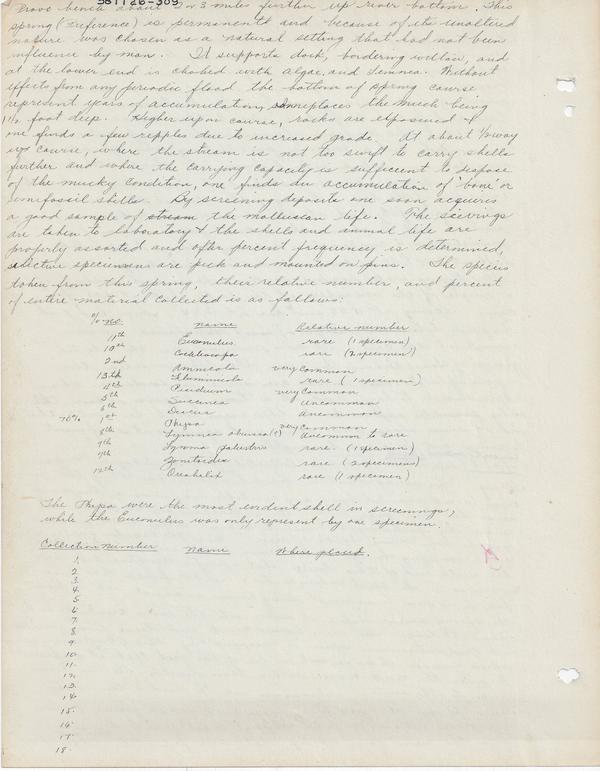 561126-309
Provo bench about 2 or 3 miles further up river bottom. This
spring (reference) is permanent and because of its unaltered
nature was chosen as a natural setting that had not been
influence by man. It supports dock, bordering willow, and
at the lower end is choked with algae, and Lemnea. Without
effects from any periodic flood the bottom of spring course
represent years of accumulation, in places the muck being
1½ foot deep. Higher up on course, rocks are exposed &
one finds a few ripples due to increased grade. At about ½ way
up course, where the stream is not too swift to carry shells
further and where the carrying capacity is sufficient to dispose
of the mucky condition, one finds an accumulation of "bone" or
semifossil shells. By screening deposits one soon acquires
a good sample of stream the molluscan life. The scivings
are taken to laboratory & the shells and animal life are
properly assorted and after percent frequency is determined,
selective specimens are pick and mounted on pins. The species
taken from this spring, their relative number, and percent
of entire material collected is as follows:
% no. name Relative number
11th Euconulus rare (1 specimen)
10th Cochlicopa rare (2 specimen)
2nd Amnicola very common
13th Fluminicola rare (1 specimen)
4th Pisidium very common
5th Succinea uncommon
6th Discus uncommon
70% 1st Physa very common
8th Lymnea obrussa(?) uncommon to rare
9th Lymna palustris rare. (1 specimen)
7th Zonitoides rare (2 specimens)
12th Oreohelix rare (1 specimen)
The Physa were the most evident shell in screenings,
while the Euconulus was only represent by one specimen.
Collection Number Name Where placed.
1.
2
3.
4.
5.
6.
7.
8.
9.
10.
11.
12.
13.
14.
15.
16.
17.
18.